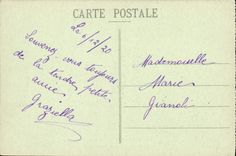 CARTE POSTALE
Le 6/12/20
Souvenez-vous toujours
de la tendre petite
amie
Graziella
Mademoiselle
Marie